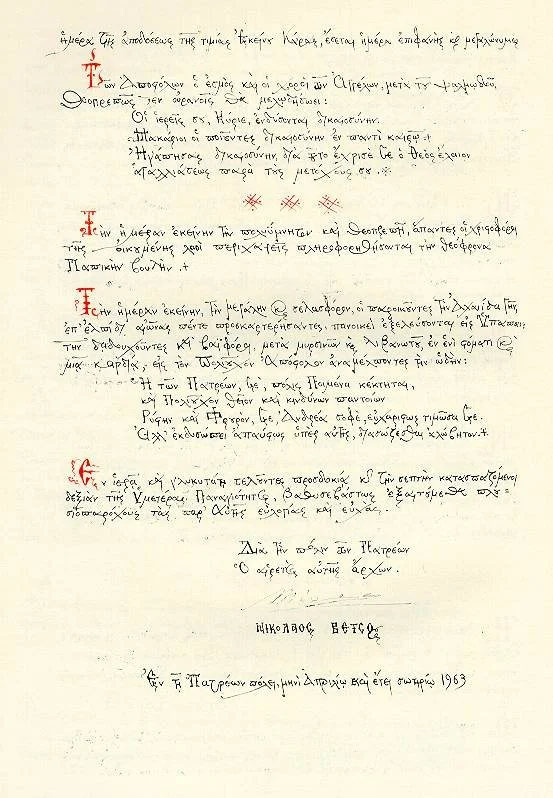 ἡμέρα τῆς ἀποθέσεως τῆς τιμίας Ἐκείνου Κάρας, ἔσεται ἡμέρα ἐπιφανὴς καὶ μεγαλώνυμος
Τῶν Ἀποστόλων ὁ ἐσμὸς καὶ οἱ χοροὶ τῶν Ἀγγέλων, μετὰ τοῦ ψαλμωδοῦ,
θεοπρεπῶς ἐν οὐρανοῖς μελωδήσωσι:
Οἱ ἱερεῖς σου, Κύριε, ἐνδύσονται δικαιοσύνην.
Μακάριοι οἱ ποιέντες δικαιοσύνην ἐν παντὶ καιρῷ +
Ἠγάπησας δικαιοσύνην, διὰ τοῦτο ἔχρισέ σε ὁ Θεὸς ἔλαιον
ἀγαλλιάσεως παρὰ τοὺς μετόχους σου.
Τὴν ἡμέραν ἐκείνην τὴν πολυύμνητον καὶ θεοπρεπῆ, ἅπαντες οἱ χριστοφόροι
τῆς οἰκουμένης λαοὶ περιχαρεῖς πληροφορηθήσονται τὴν θεόφρονα
Παπικὴν βουλήν. +
Τὴν ἡμέραν ἐκείνην, τὴν μεγάλην καὶ σελασφόρον, οἱ παροικοῦντες τὴν Ἀχαιίδα γῆν,
ἐπ' ἐλπίδι αἰῶνας πέντε προσκαρτερήσαντες, πανοικεὶ ἐξελεύσονται εἰς Ὑπαπαντὴν
δαδουχοῦντες καὶ βαϊφόροι, μετὰ μυρσινῶν καὶ λιβανωτοῦ, ἐν ἑνὶ στόματι καὶ
μιᾷ καρδίᾳ, εἰς τὸν Πολιοῦχον Ἀπόστολον ἀναμέλποντες τὴν ὠδήν:
Ἡ τῶν Πατρέων, σε, πόλις Ποιμένα κέκτηται,
καὶ Πολιοῦχον θεῖον καὶ κινδύνων παντοίων
Ρύστην καὶ Φρουρόν, σε, Ἀνδρέα σοφέ, εὐχαρίστως τιμῶσά σε.
Ἀλλ' ἐκδυσώπει ἀπαύστως ὑπὲρ αὐτῆς, διασώζεσθαι ἀλώβητον. +
Ἐν ἱερᾷ καὶ γλυκυτάτῃ τελοῦντες προσδοκίᾳ καὶ τὴν σεπτὴν κατασπαζόμενοι
δεξιὰν τῆς Ὑμετέρας Παναγιότητος, βαθυσεβάστως ἐξαιτούμεθα πλου-
σιοπαρόχους τὰς παρ' Αὐτῆς εὐλογίας καὶ εὐχάς.
Διὰ τὴν πόλιν τῶν Πατρέων
Ὁ αἱρετὸς αὐτῆς ἄρχων.
ΝΙΚΟΛΑΟΣ ΒΕΤΣΟΣ
Ἐν τῇ Πατρέων πόλει, μηνὶ Ἀπριλίῳ καὶ ἔτει σωτηρίῳ 1963